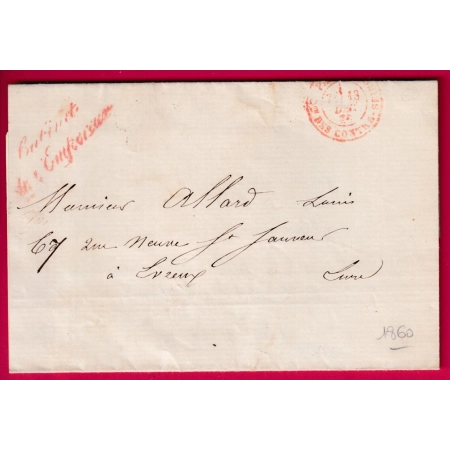 Cabinet
de l'Empereur
13
DES CONTRE-SE
Monsieur Allard Louis
67 rue Neuve St Sauveur
à Evreux Eure
1860